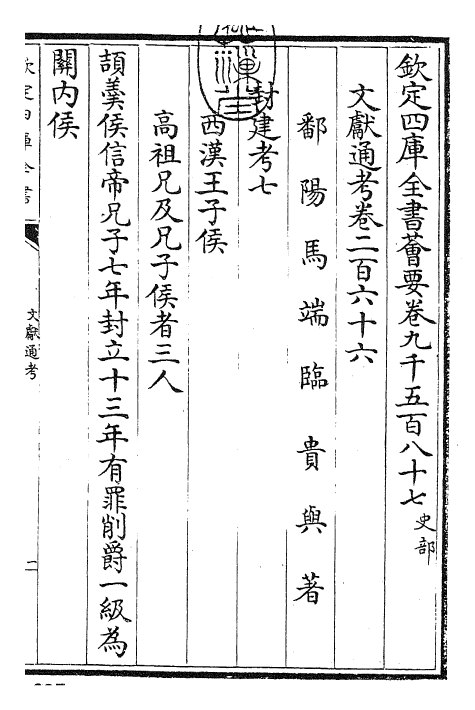 欽定四庫全書薈要卷九千五百八十七 史部
文獻通考卷二百六十六
鄱陽馬端臨貴與著
封建考七
西漢王子侯
高祖兄及兄子侯者三人
頡羮侯信帝兄子七年封立十三年有罪削爵一級為
關內侯
欽定四庫全書
文獻通考